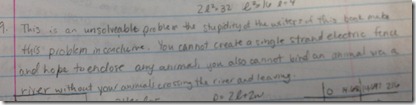 2l=32 l=16
9. This is an unsolveable problem the stupidity of the writers of this book make
this problem inconclusive. You cannot create a single strand electric fence
and hope to enclose any animal, you also cannot bind an animal via a
river without your animals crossing the river and leaving.
P=2l+2w